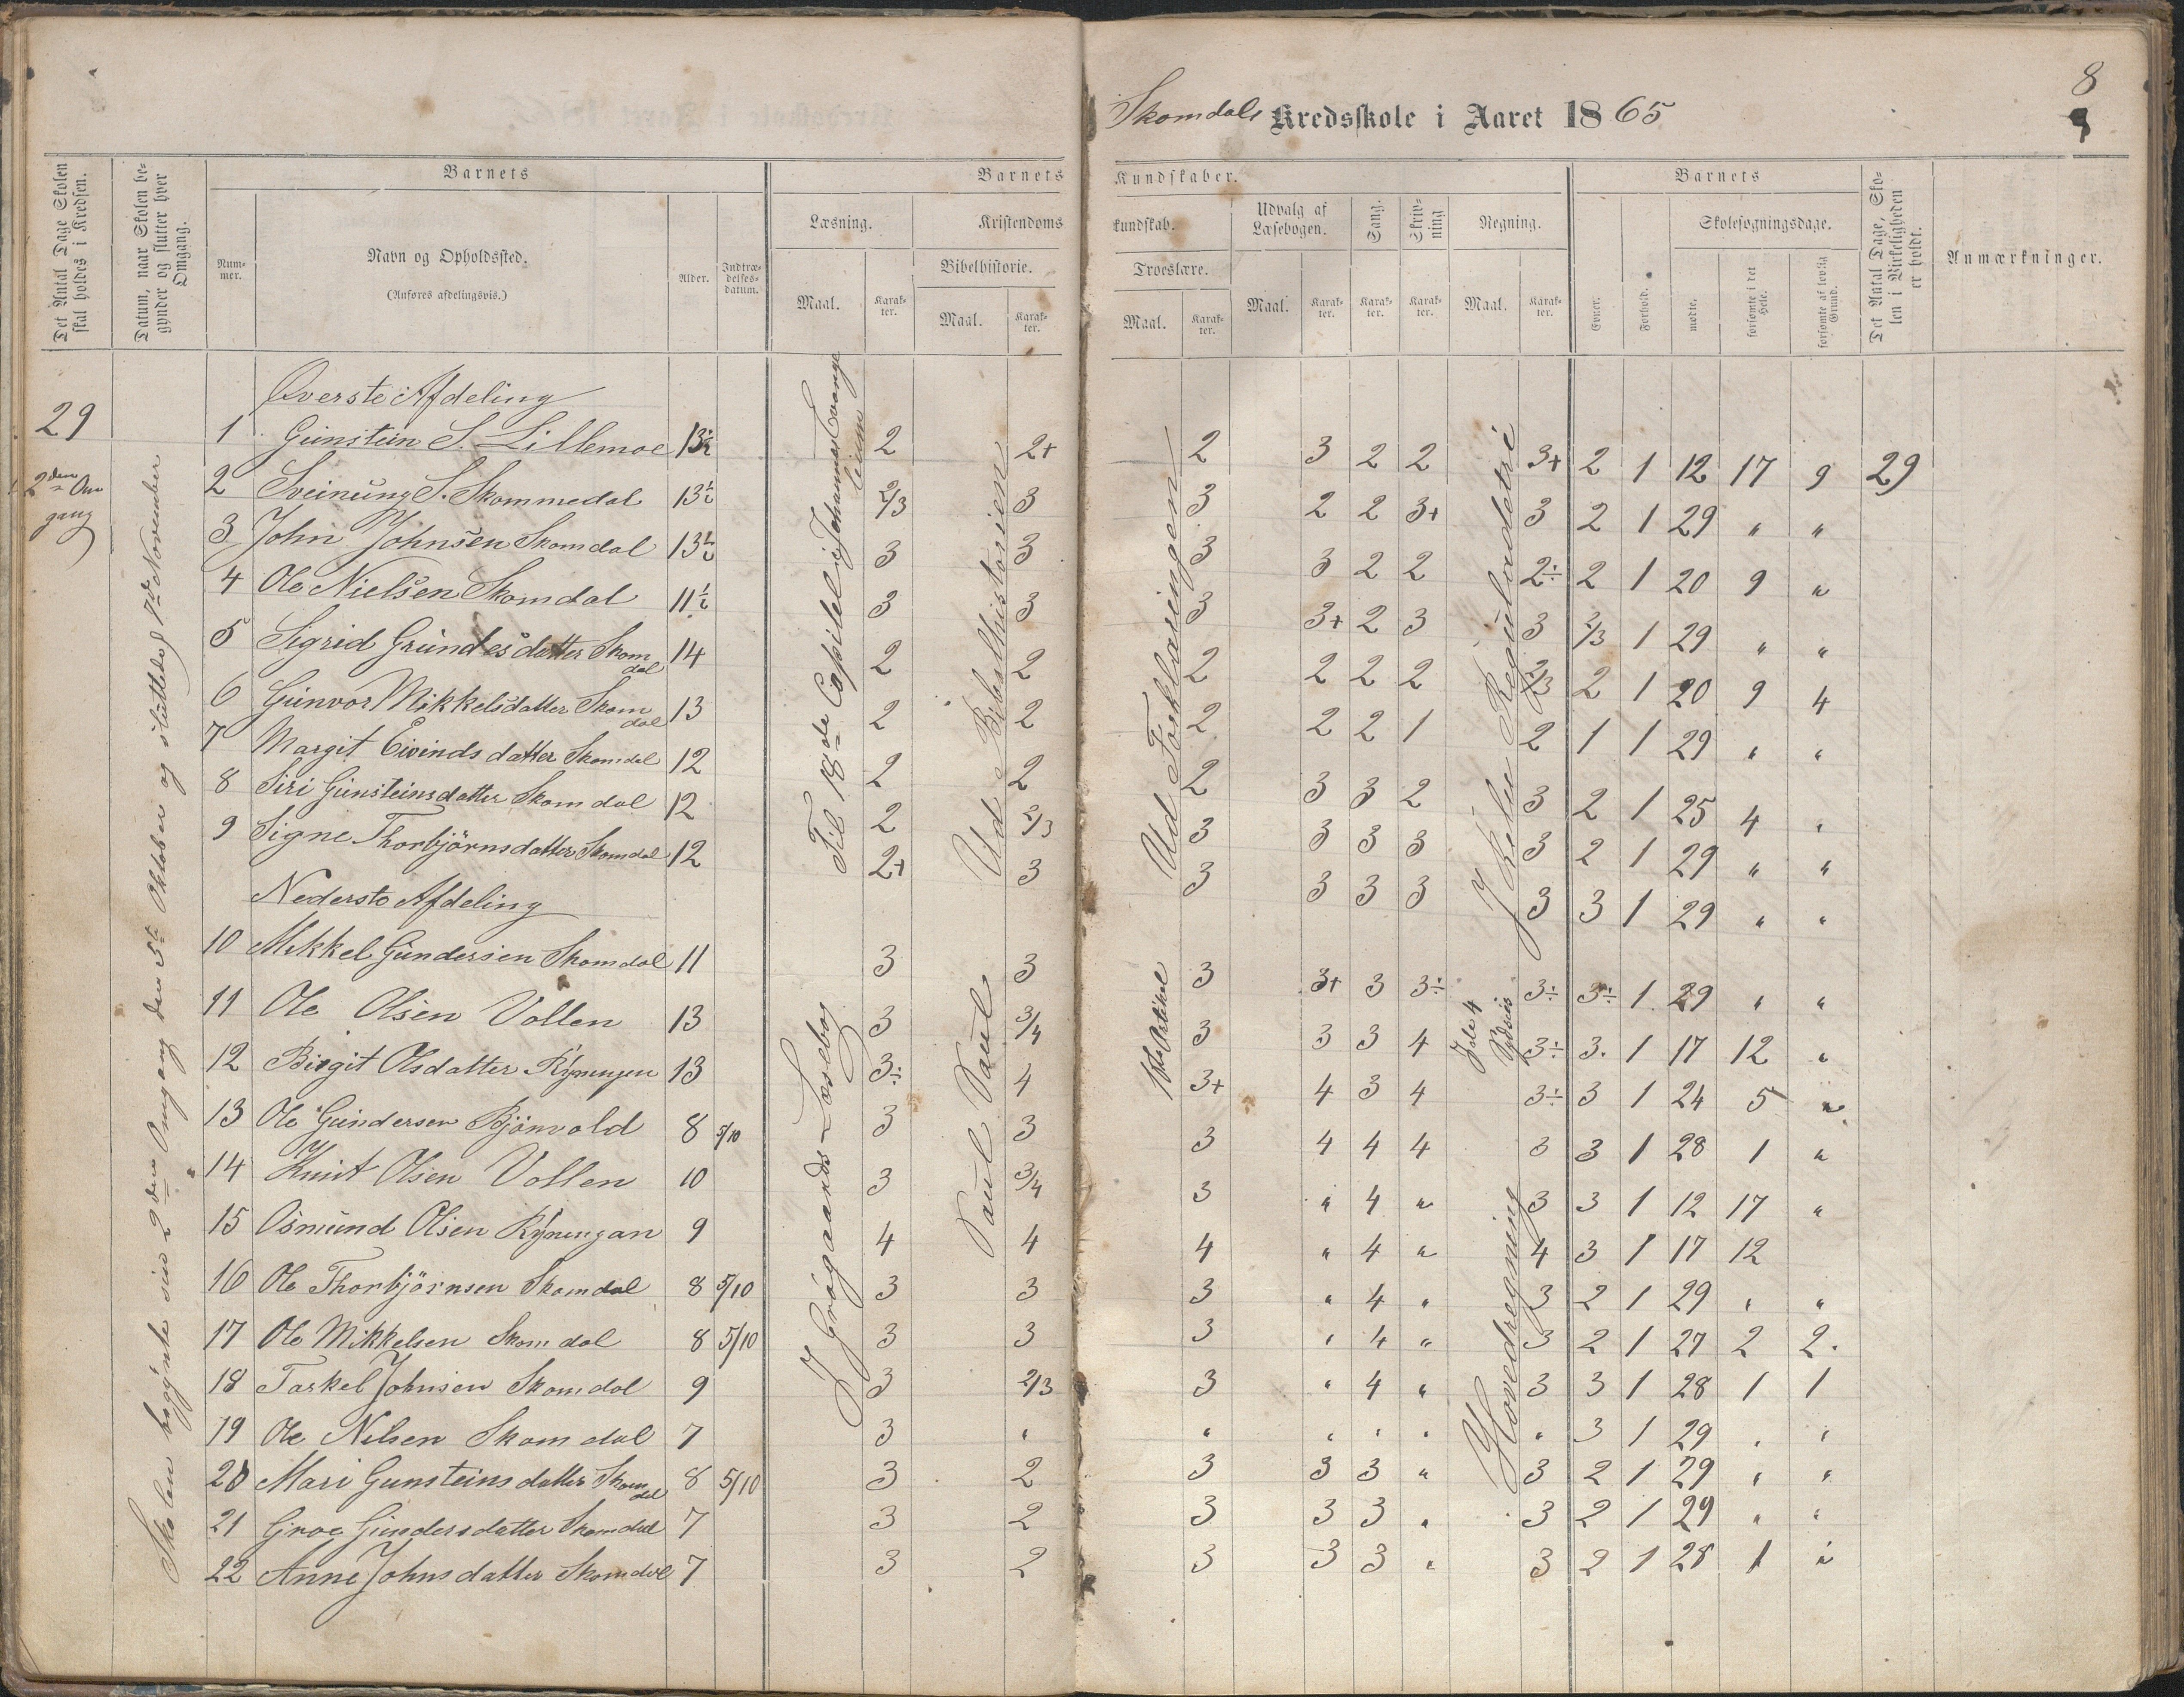 8
9
Skomdals Kredsskole i Aaret 1865
Det Antal Dage Skolen skal holdes i Kredsen.
Datum, naar Skolen begynder og slutter hver Omgang.
Barnets
Nummer.
Navn og Opholdssted.
(Anføres afdelingsvis.)
Alder.
Indtrædelsesdatum.
Barnets Kundskaber.
Læsning.
Maal.
Karakter.
Kristendomskundskab.
Bibelhistorie.
Maal.
Karakter.
Troeslære.
Maal.
Karakter.
Udvalg af Læsebogen.
Maal.
Karakter.
Sang.
Karakter.
Skrivning
Karakter.
Regning.
Maal.
Karakter.
Barnets
Evner.
Forhold.
Skolesøgningsdage.
mødte.
forsømte i det Hele.
forsømte af lovlig Grund.
Det Antal Dage, Skolen i Virkeligheden er holdt.
Anmærkninger.
29
2den Omgang
Skolen begyndte sin 2den Omgang den 5te Oktober og sluttede 7de November
Til 18de Capitel i Johannes Evangelium
Ud Bibelhistorien
Ud Forklaringen
I hele Reguladetri
I Grøgaards Læsebog
Paul Paul
1ste Artikel
I de 4 Species
Hovedregning
Øverste Afdeling
1 Gunstein S. Lillemoe 13½ 2 2+ 2 3 2 2 3+ 2 1 12 17 9 29
2 Sveinung S. Skommedal 13½ 2/3 3 3 2 2 3+ 3 2 1 29 " "
3 John Johnsen Skomdal 13½ 3 3 3 3 2 2 2÷ 2 1 20 9 "
4 Ole Nielsen Skomdal 11½ 3 3 3 3+ 2 3 3 2/3 1 29 " "
5 Sigrid Grundesdatter Skomdal 14 2 2 2 2 2 2 2/3 2 1 20 9 4
6 Gunvor Mikkelsdatter Skomdal 13 2 2 2 2 2 1 2 1 1 29 " "
7 Margit Eivindsdatter Skomdal 12 2 2 2 3 3 2 3 2 1 25 4 "
8 Siri Gunsteinsdatter Skomdal 12 2 2/3 3 3 3 3 3 2 1 29 " "
9 Signe Thorbjörnsdatter Skomdal 12 2+ 3 3 3 3 3 3 3 1 29 " "
Nederste Afdeling
10 Mikkel Gundersen Skomdal 11 3 3 3 3+ 3 3÷ 3÷ 3÷ 1 29 " "
11 Ole Olsen Vollen 13 3 3/4 3 3 3 4 3÷ 3. 1 17 12 "
12 Birgit Olsdatter Rÿningen 13 3÷ 4 3+ 4 3 4 3÷ 3 1 24 5 "
13 Ole Gundersen Bjönvold 8 5/10 3 3 3 4 4 4 3 3 1 28 1 "
14 Knut Olsen Vollen 10 3 3/4 3 " 4 " 3 3 1 12 17 "
15 Osmund Olsen Rÿningan 9 4 4 4 " 4 " 4 3 1 17 12
16 Ole Thorbjörnsen Skomdal 8 5/10 3 3 3 " 4 " 3 2 1 29 " "
17 Ole Mikkelsen Skomdal 8 5/10 3 3 3 " 4 " 3 2 1 27 2 2.
18 Tarkel Johnsen Skomdal 9 3 2/3 3 " 4 " 3 3 1 28 1 1
19 Ole Nilsen Skomdal 7 3 " " " " " " 3 1 29 " "
20 Mari Gunsteinsdatter Skomdal 8 5/10 3 2 3 3 3 " 3 2 1 29 " "
21 Groe Gundersdatter Skomdal 7 3 2 3 3 3 " 3 2 1 29 " "
22 Anne Johnsdatter Skomdal 7 3 2 3 3 3 " 3 2 1 28 1 "